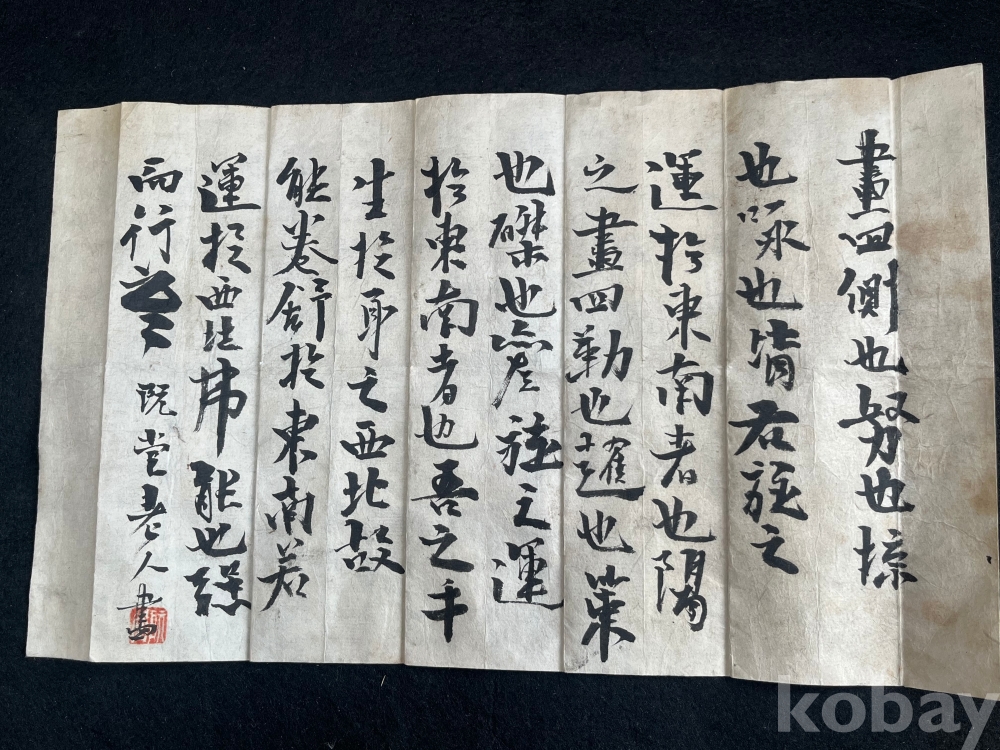 畫四側也努也掠
也啄也皆右旋之
運於東南者也陽
之畫四勒也趯也策
也磔也皆左旋之運
於東南者也吾之手
生於身之西北故
能卷舒於東南若
運於西北弗能也强
而行之 阮堂老人書
kobay